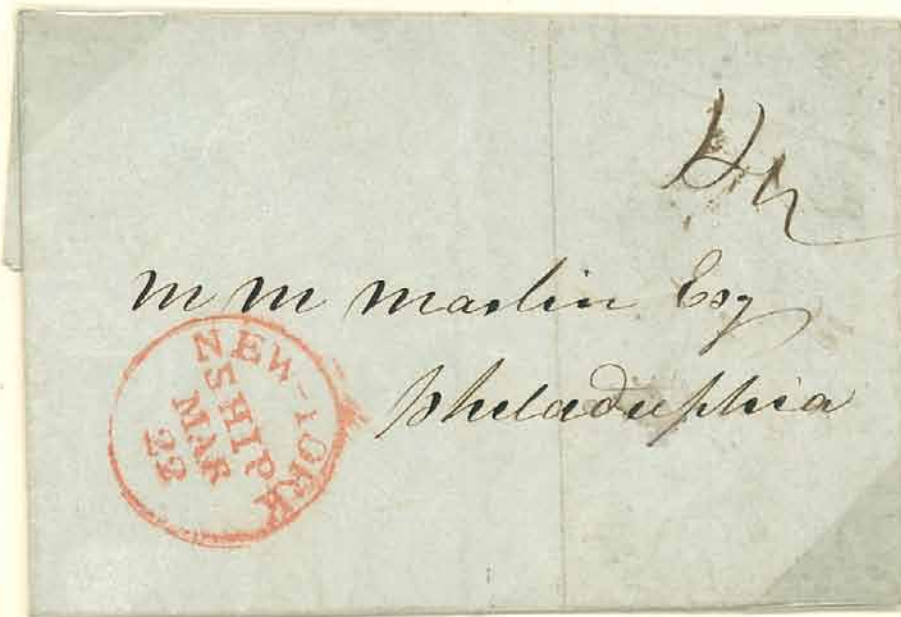 14½
M M Marlin Esq
Philadelphia
NEW-YORK
SHIP
MAR
23